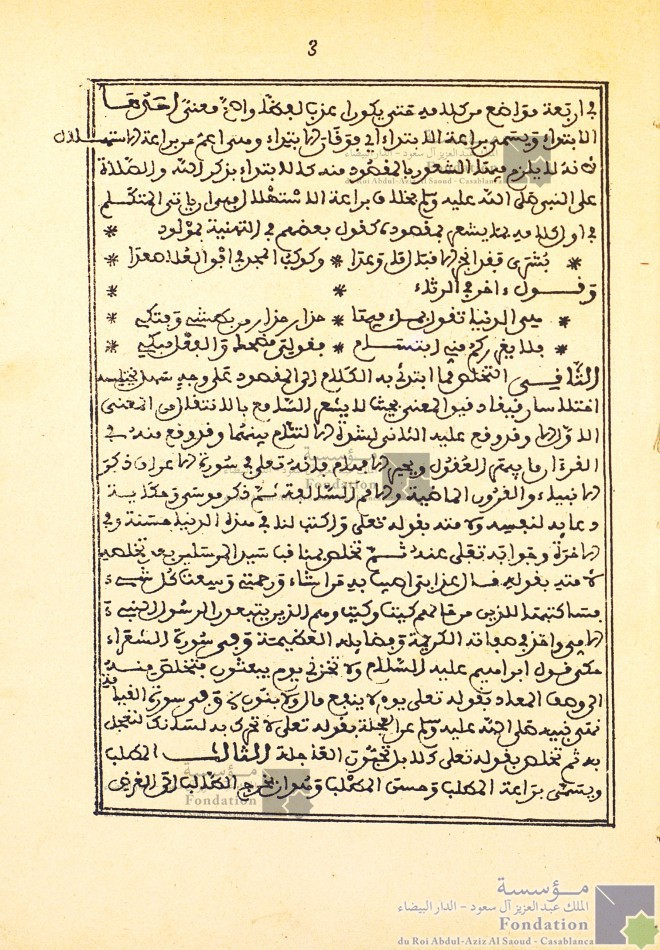 3
في اربعة مواضع من كلامه حتى يكون اعذب لفظا واصح معنى احدها
الابتداء ويسمى براعة الابتداء اي تفوق الابتداء وهي اعم من براعة الاستهلال
لانه لا يلزم فيها الشعور بالمقصود منه كالابتداء بذكر الله والصلاة
على النبي صلى الله عليه وسلم بخلاف براعة الاستهلال فهي ان ياتي المتكلم
في اول كلامه بما يشعر بمقصوده كقول بعضهم في التهنية بمولود *
* بشرى فقد انجز الاقبال ما وعدا * وكوكب المجد في افق العلا صعدا *
وقول ءاخر في الرثاء * *
* هي الدنيا تقول بملء فيها * حذار حذار من بطشي وفتكي *
* فلا يغرركم مني ابتسام * فقولي مضحك والفعل مبكي *
الثاني التخلص مما ابتدئ به الكلام الى المقصود على وجه سهل يختلسه
اختلاسا رقيقا دقيق المعنى بحيث لا يشعر السامع بالانتقال من المعنى
الاول الا وقد وقع عليه الثاني لشدة الالتئام بينهما وقد وقع منه في
القرءان ما يبهر العقول ويحير الافهام فانه تعلى في سورة الاعراف ذكر
الانبياء والقرون الماضية والامم السالفة ثم ذكر موسى وحكاية
دعايه لنفسه ولامته بقوله تعلى واكتب لنا في هذه الدنيا حسنة وفي
الاخرة وجوابه تعلى عنه ثم تخلص بمناقب سيد المرسلين بعد تخلصه
لامته بقوله قال عذابي اصيب به من اشاء ورحمتي وسعت كل شيء
فساكتبها للذين من صفاتهم كيت وكيت وهم الذين يتبعون الرسول النبيء
الامي واخذ في صفاته الكريمة وفضايله العظيمة وفي سورة الشعراء
حكى قول ابراهيم عليه السلام ولا تخزني يوم يبعثون فتخلص منه
الى وصف المعاد بقوله تعلى يوم لا ينفع مال ولا بنون وفي سورة القيامة
نهى نبيه صلى الله عليه وسلم عن العجلة بقوله تعلى لا تحرك به لسانك لتعجل
به ثم تخلص بقوله تعلى كلا بل تحبون العاجلة الثالث المطلب
ويسمى براعة المطلب وحسن المطلب وهو ان يخرج الطالب الى الغرض
مؤسسة
الملك عبد العزيز آل سعود - الدار البيضاء
Fondation
du Roi Abdul-Aziz Al Saoud - Casablanca